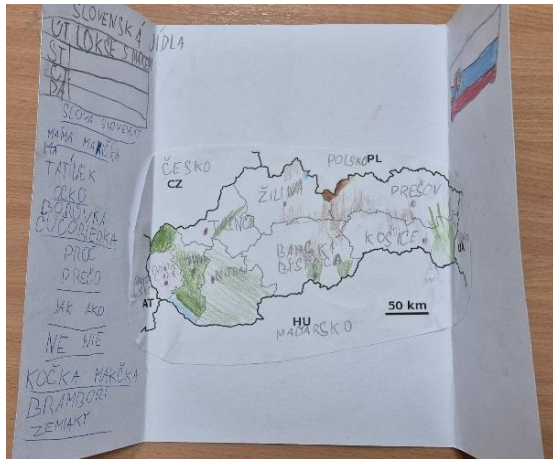 SLOVENSKÁ JÍDLA
ÚT LOKŠE S MAKEM
ST
ČT
PÁ
SLOVA SLOVENSKY
MÁMA MAMKA
TATÍNEK
OCKO
BORŮVKA
ČUČORIEDKA
PROČ
PREČO
JAK AKO
NE NIE
KOČKA MAČKA
BRAMBORI
ZEMIAKY
ČESKO
CZ
POLSKO PL
ŽILINA
PREŠOV
TRENČÍN
BANSKÁ
BISTRICA
KOŠICE
NITRA
AT
UA
50 km
HU
MAĎARSKO